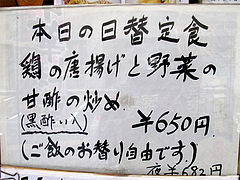 本日の日替定食
鶏の唐揚げと野菜の
甘酢の炒め
(黒酢い入)
¥650円
(ご飯のお替り自由です。)
夜¥682円